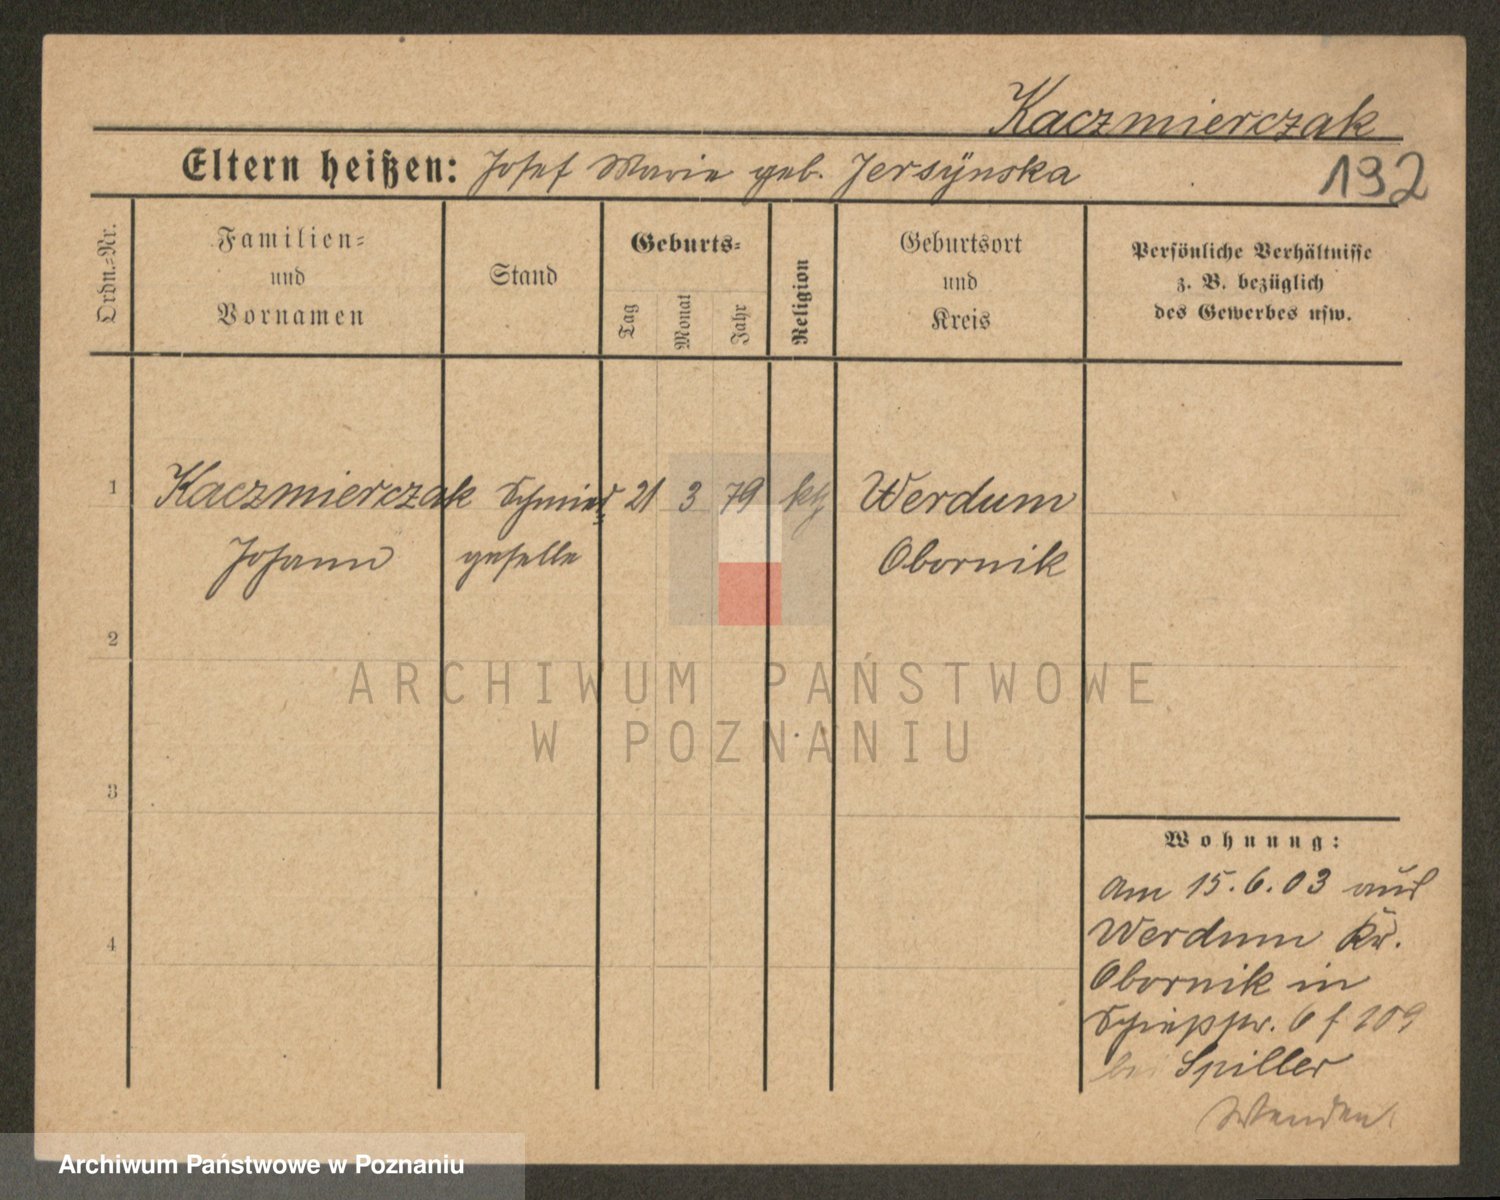 Kaczmierczak
Eltern heißen: Josef Marie geb. Jersÿnska
192
Ordn.-Nr.
Familien-
und
Vornamen
Stand
Geburts-
Tag
Monat
Jahr
Religion
Geburtsort
und
Kreis
Persönliche Verhältnisse
z. B. bezüglich
des Gewerbes usw.
1 Kaczmierczak Schmied 21 3 79 kth Werdum
Johann geselle Obornik
2
3
4
Wohnung:
am 15.6.03 aus
Werdum Kr.
Obornik in
Schießstr. 6 f 109
bei Spiller
Wenden!
ARCHIWUM PAŃSTWOWE
W POZNANIU
Archiwum Państwowe w Poznaniu